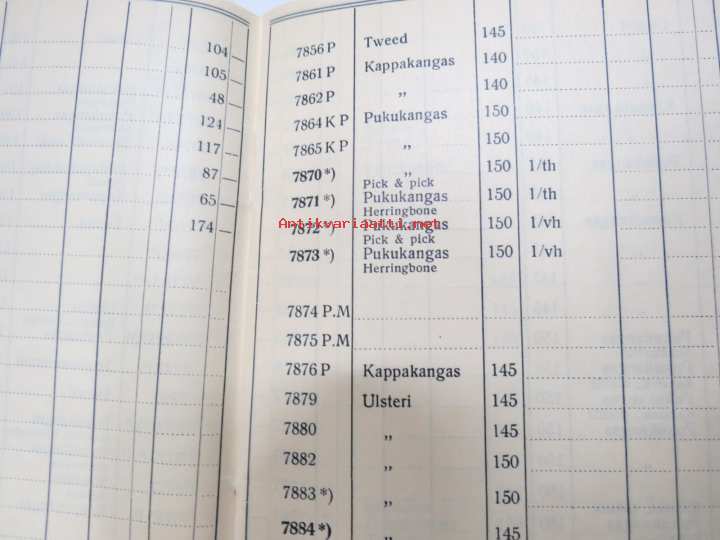 104 —
105 —
48 —
124 —
117 —
87 —
65 —
174 —
7856 P Tweed 145
7861 P Kappakangas 140
7862 P „ 140
7864 K P Pukukangas 150
7865 K P „ 150
7870 *) „ 150 1/th
Pick & pick
7871 *) Pukukangas 150 1/th
Herringbone
7872 *) Pukukangas 150 1/vh
Antikvariaatti.net
Pick & pick
7873 *) Pukukangas 150 1/vh
Herringbone
7874 P.M
7875 P.M
7876 P Kappakangas 145
7879 Ulsteri 145
7880 „ 145
7882 „ 150
7883 *) „ 150
7884 *) „ 145